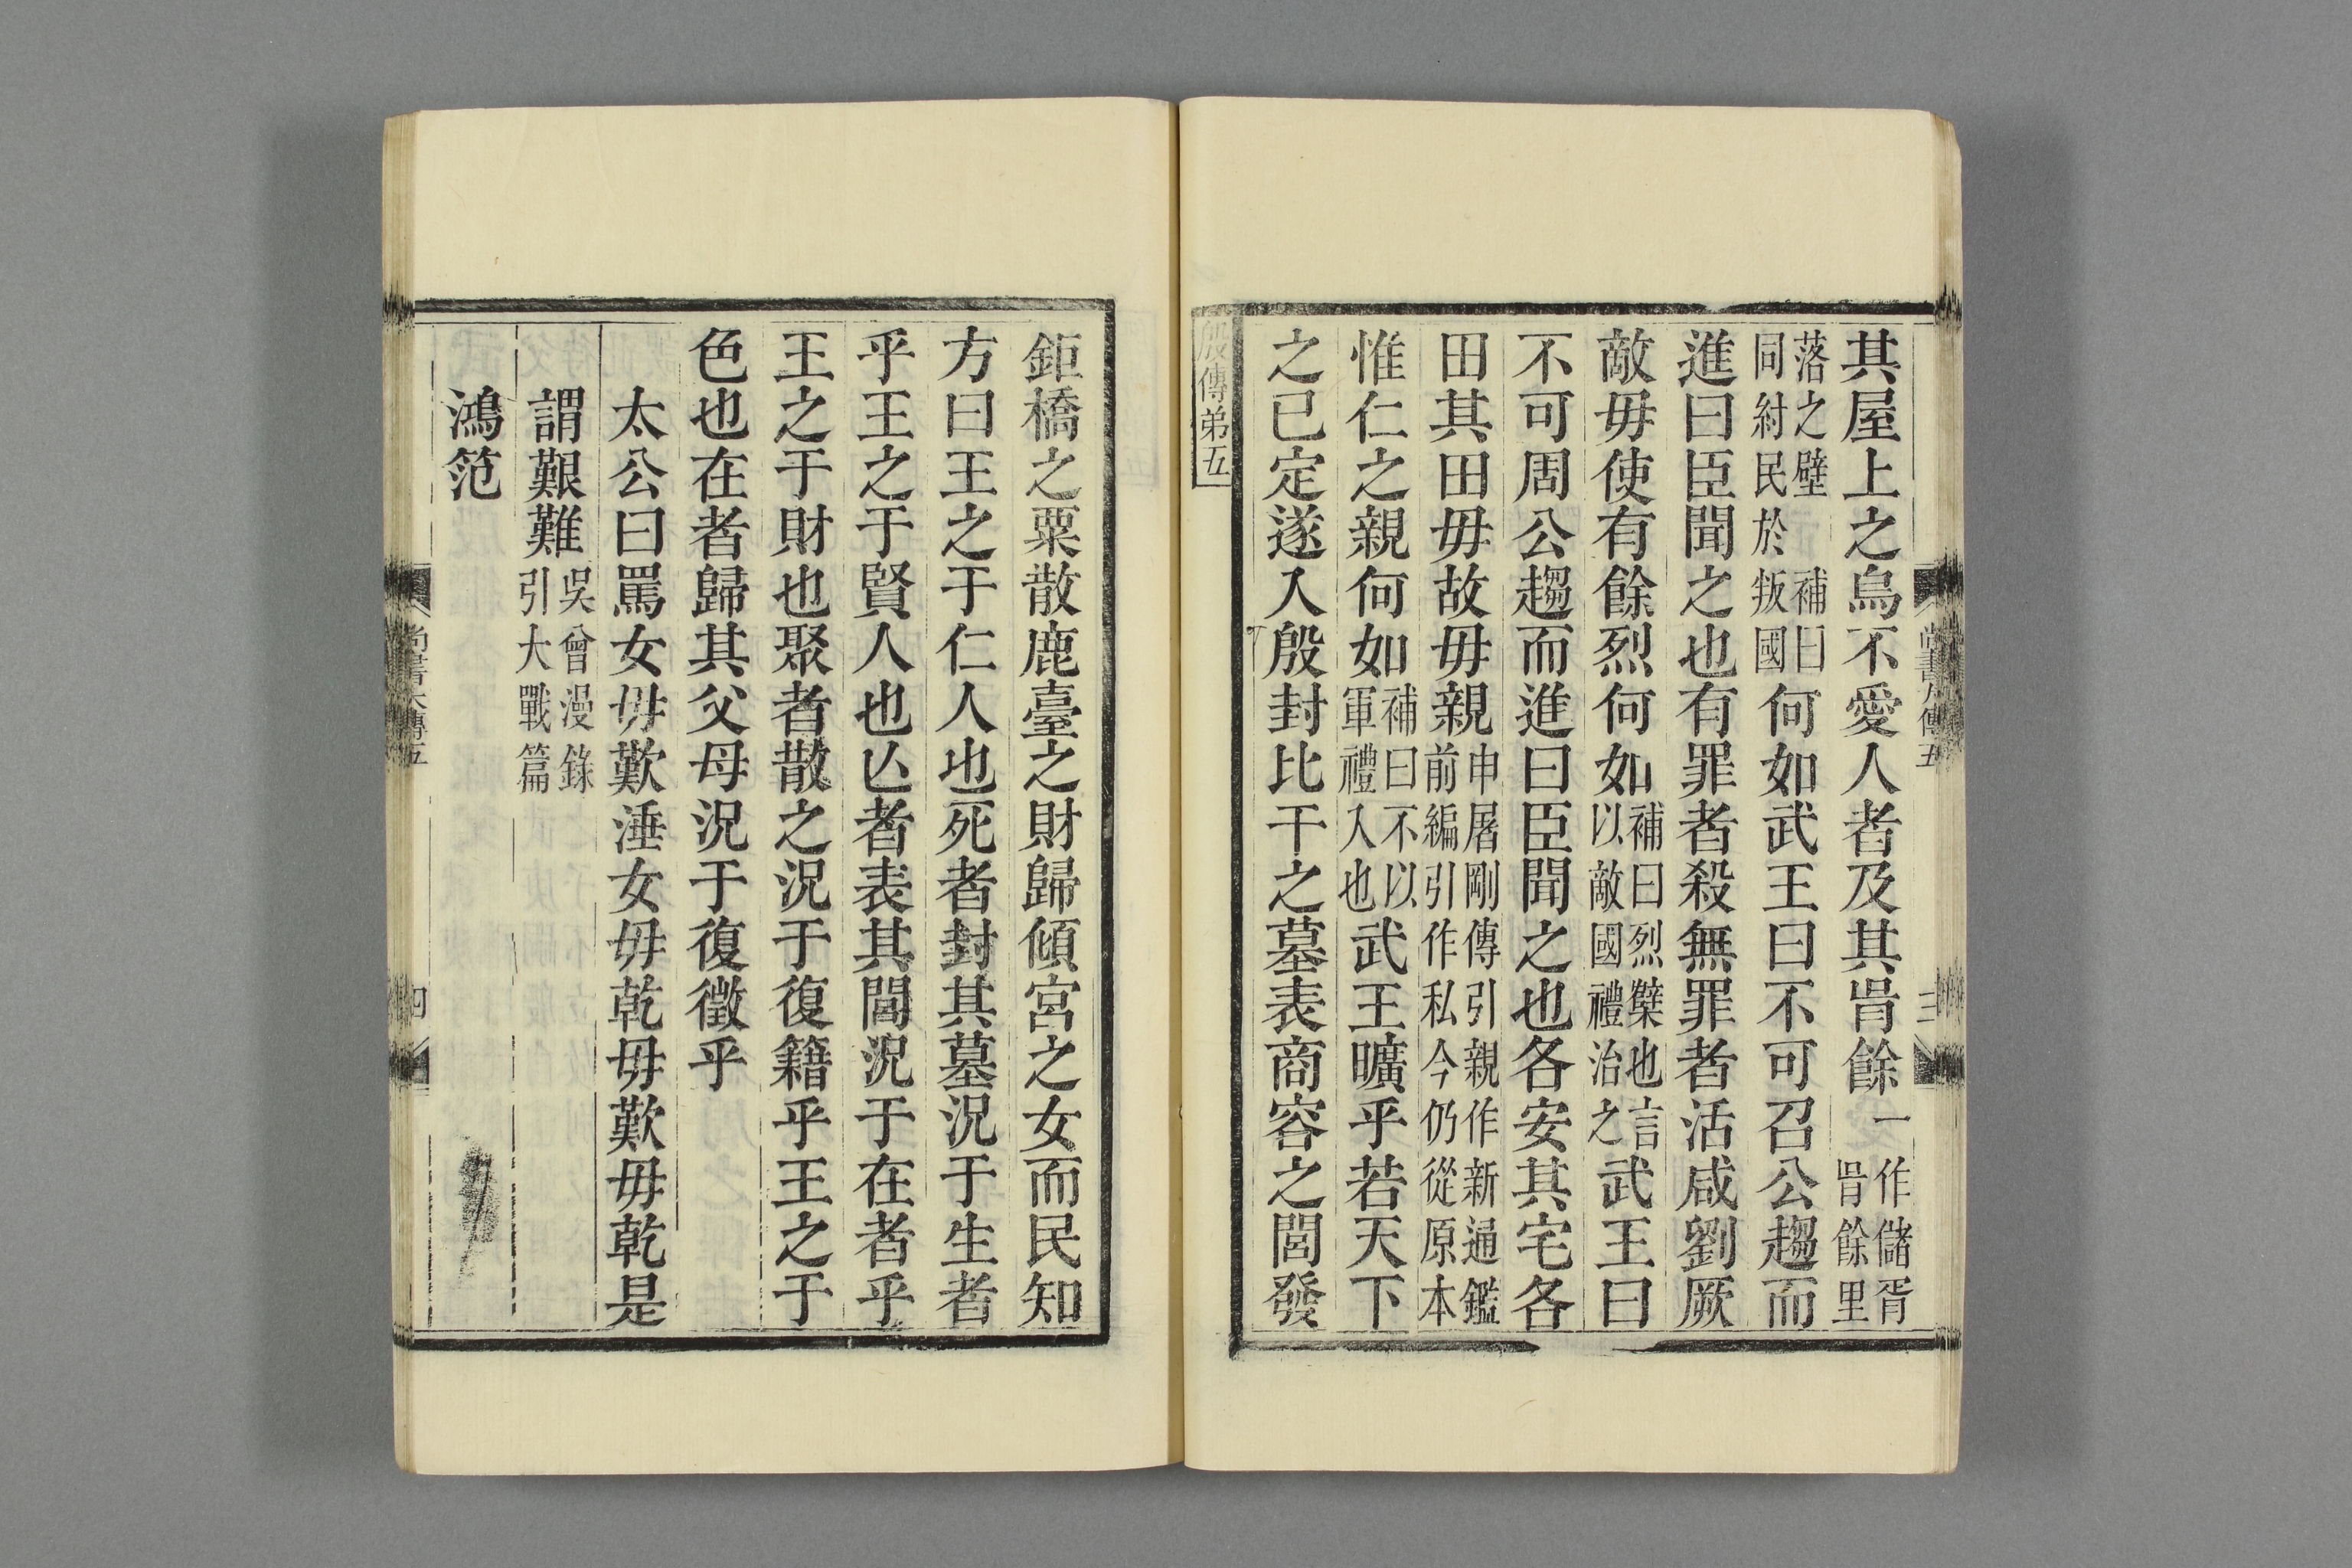 其屋上之烏不愛人者及其胥餘一作儲胥胥餘里
落之壁補曰同紂民於叛國何如武王曰不可召公趨而
進曰臣聞之也有罪者殺無罪者活咸劉厥
敵毋使有餘烈何如補曰烈櫱也言以敵國禮治之武王曰
不可周公趨而進曰臣聞之也各安其宅各
田其田毋故毋親申屠剛傳引親作新通鑑前編引作私今仍從原本
惟仁之親何如補曰不以軍禮入也武王曠乎若天下
之已定遂入殷封比干之墓表商容之閭發
殷傳弟五
鉅橋之粟散鹿臺之財歸傾宮之女而民知
方曰王之于仁人也死者封其墓況于生者
乎王之于賢人也亾者表其閭況于在者乎
王之于財也聚者散之況于復籍乎王之于
色也在者歸其父母況于復徵乎
太公曰罵女毋歎涶女毋乾毋歎毋乾是
謂艱難吳曾漫錄引大戰篇
鴻范
尚書大傳五
四